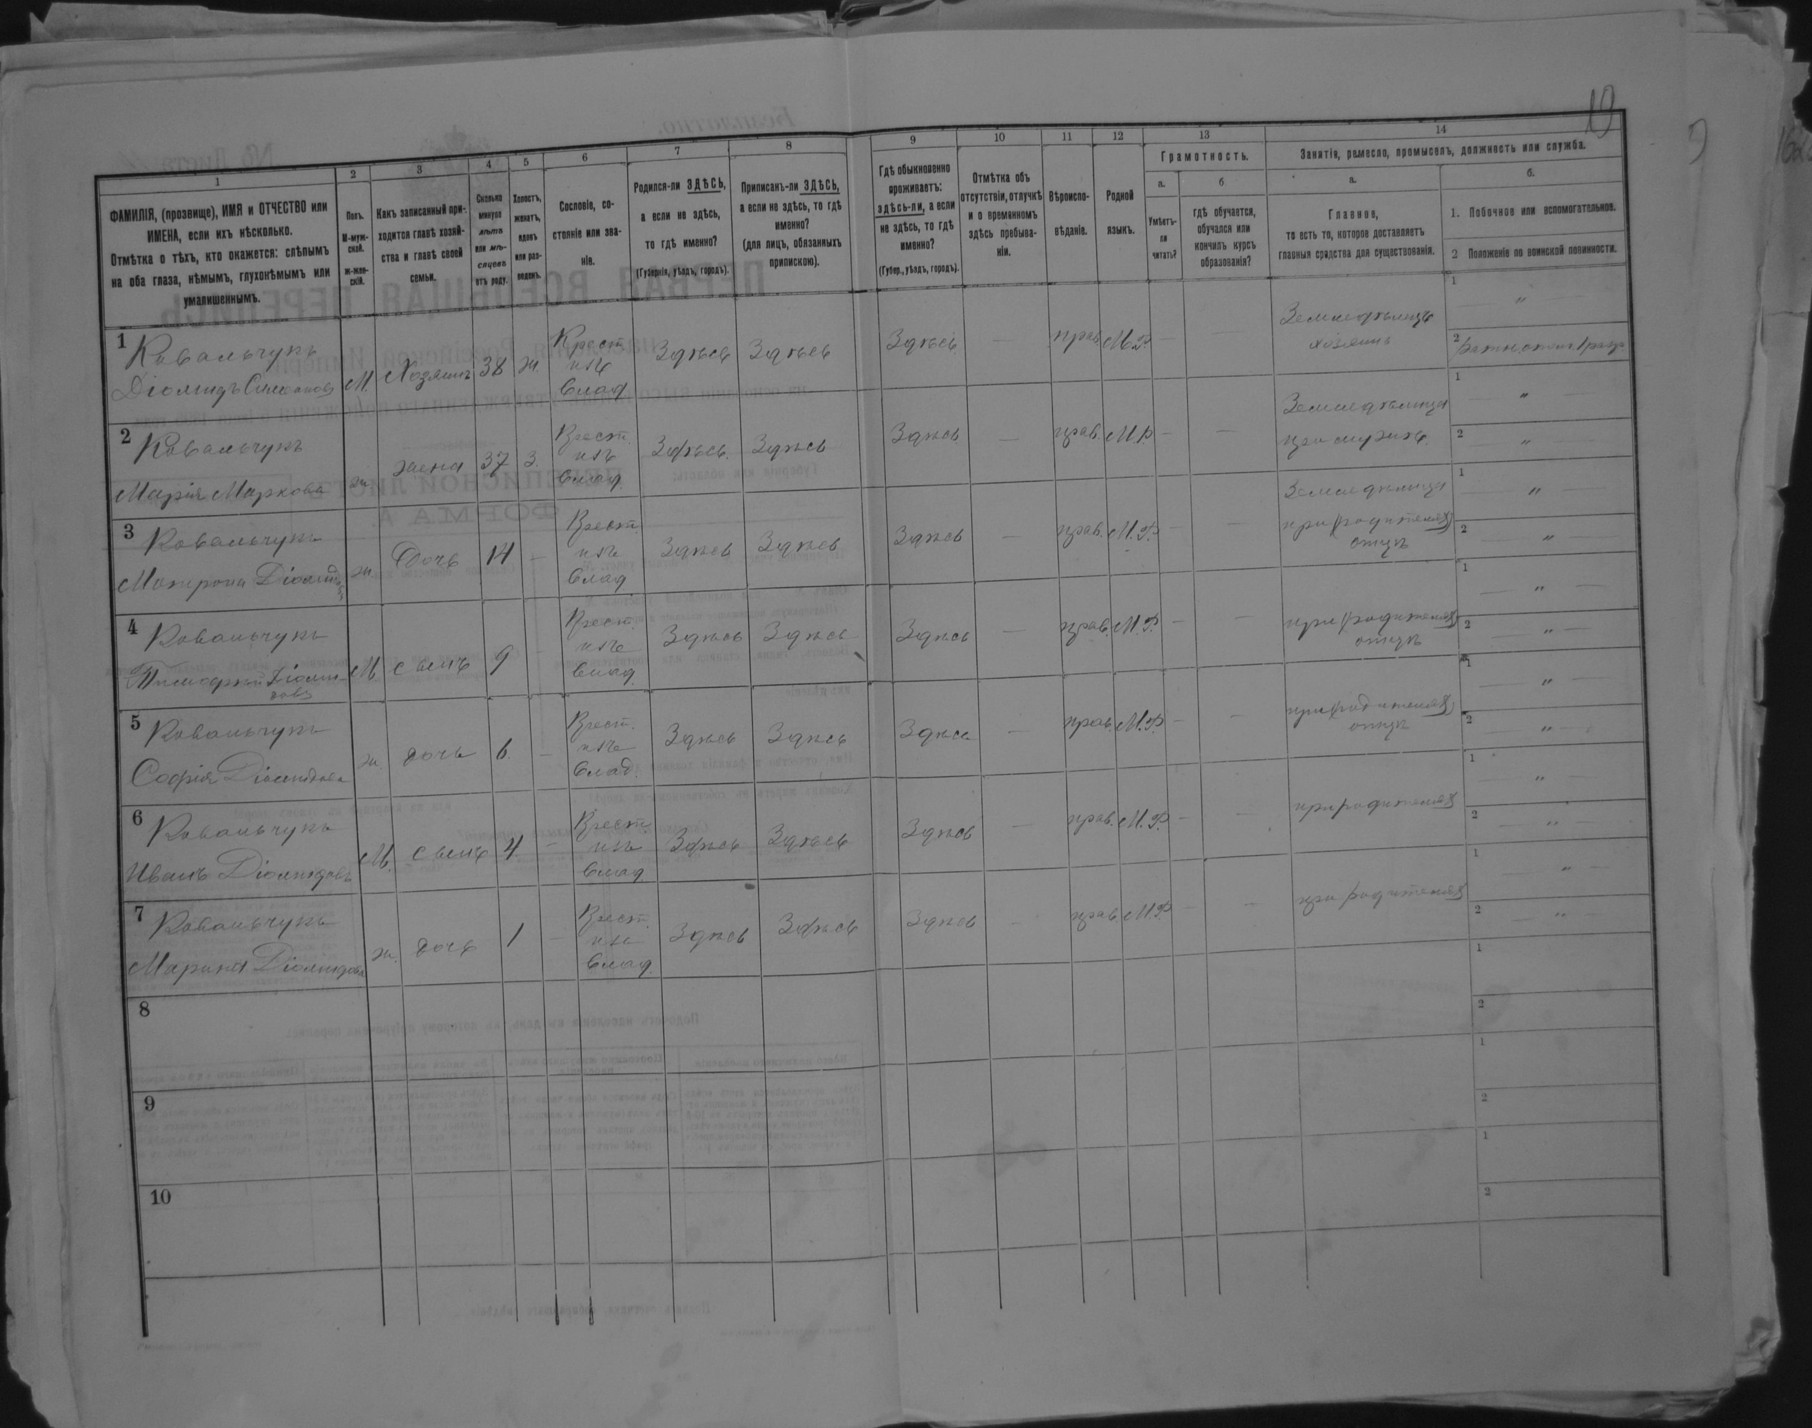 19
1
2
3
4
5
6
7
8
9
10
11
12
13
14
ФАМИЛІЯ, (прозвище), ИМЯ и ОТЧЕСТВО или
ИМЕНА, если ихъ нѣсколько.
Отмѣтка о тѣхъ, кто окажется: слѣпымъ
на оба глаза, нѣмымъ, глухонѣмымъ или
умалишеннымъ.
Полъ.
М-муж-
ской.
ж-жен-
скій.
Какъ записанный при-
ходится главѣ хозяй-
ства и главѣ своей
семьи.
Сколько
минуло
лѣтъ
или мѣ-
сяцевъ
отъ роду.
Холостъ,
женатъ,
вдовъ
или раз-
веденъ.
Сословіе, со-
стояніе или зва-
ніе.
Родился-ли ЗДѢСЬ,
а если не здѣсь,
то гдѣ именно?
(Губернія, уѣздъ, городъ).
Приписанъ-ли ЗДѢСЬ,
а если не здѣсь, то гдѣ
именно?
(для лицъ, обязанныхъ
припискою).
Гдѣ обыкновенно
проживаетъ:
здѣсь-ли, а если
не здѣсь, то гдѣ
именно?
(Губер., уѣздъ, городъ).
Отмѣтка объ
отсутствіи, отлучкѣ
и о временномъ
здѣсь пребыва-
ніи.
Вѣроиспо-
вѣданіе.
Родной
языкъ.
Грамотность.
а.
б
Умѣетъ-
ли
читать?
гдѣ обучается,
обучался или
кончилъ курсъ
образованія?
Занятія, ремесло, промыселъ, должность или служба.
а.
б.
Главное,
то есть то, которое доставляетъ
главныя средства для существованія.
1. Побочное или вспомогательное.
2 Положеніе по воинской повинности.
1 Ковальчукъ
Діомидъ Симеоновъ М. Хозяинъ 38 ж Крест. изъ влад Здѣсь Здѣсь Здѣсь — прав М.Р — — Земледѣлецъ хозяинъ
1 "
2
2 Ковальчукъ
Марія Маркова ж жена 37 з. Крест. изъ влад Здѣсь Здѣсь Здѣсь — прав. М.Р — — Земледѣлица при мужѣ
1 "
2 "
3 Ковальчукъ
Матрона ж Дочь 14 — Крест. изъ влад Здѣсь Здѣсь Здѣсь — прав. М.Р. — — Земледѣлица при родителяхъ отцѣ
1 "
2 "
4 Ковальчукъ
Тимофей М сынъ 9 Крест. изъ влад Здѣсь Здѣсь Здѣсь — прав. М.Р. — — при родителяхъ отцѣ
1 "
2 "
5 Ковальчукъ
Софія Діомидова ж дочь 6. — Крест. изъ влад. Здѣсь Здѣсь Здѣсь — прав. М.Р. — — при родителяхъ отцѣ
1 "
2 "
6 Ковальчукъ
Иванъ Діомидовъ М. сынъ 4 — Крест. изъ влад Здѣсь Здѣсь Здѣсь — прав. М.Р. — — при родителяхъ
1 "
2 "
7 Ковальчукъ
Марина Діомидова ж. дочь 1 — Крест. изъ влад Здѣсь Здѣсь Здѣсь — прав М.Р — — при родителяхъ
1 "
2 "
8
1
2
9
1
2
10
1
2